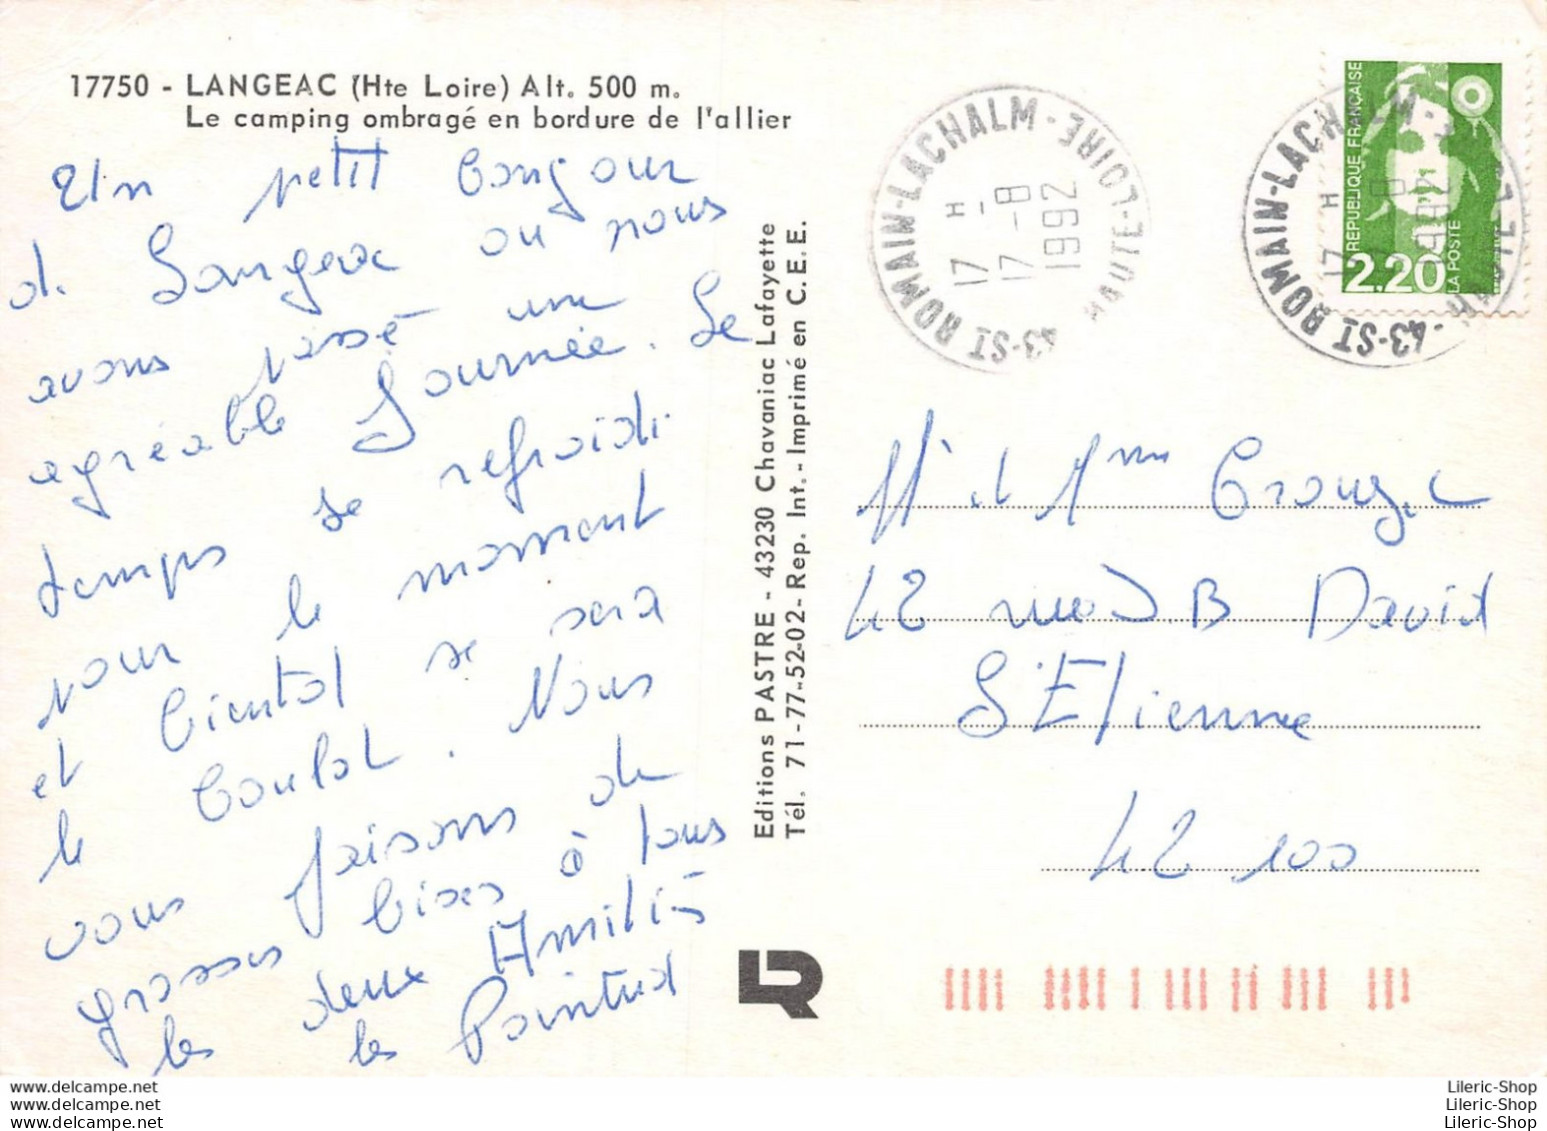 17750 - LANGEAC (Hte Loire) Alt. 500 m.
Le camping ombragé en bordure de l'allier
Un petit bonjour
de Langeac ou nous
avons passé une
agréable Journée. Le
temps se refroidi
pour le moment
et bientot se sera
le boulot. Nous
vous faisons de
grosses bises à tous
les deux Amitiés
les Pointud
Editions PASTRE - 43230 Chavaniac Lafayette
Tél. 71-77-52-02 - Rep. Int. - Imprimé en C.E.E.
43-ST ROMAIN-LACHALM - HAUTE-LOIRE
17 H
17-8
1992
43-ST ROMAIN-LACHALM
17 H
1992
REPUBLIQUE FRANÇAISE
2.20
LA POSTE
Mr et Mme
42 rue J.B David
St Etienne
42 100
www.delcampe.net
www.delcampe.net
www.delcampe.net
Lileric-Shop
Lileric-Shop
Lileric-Shop